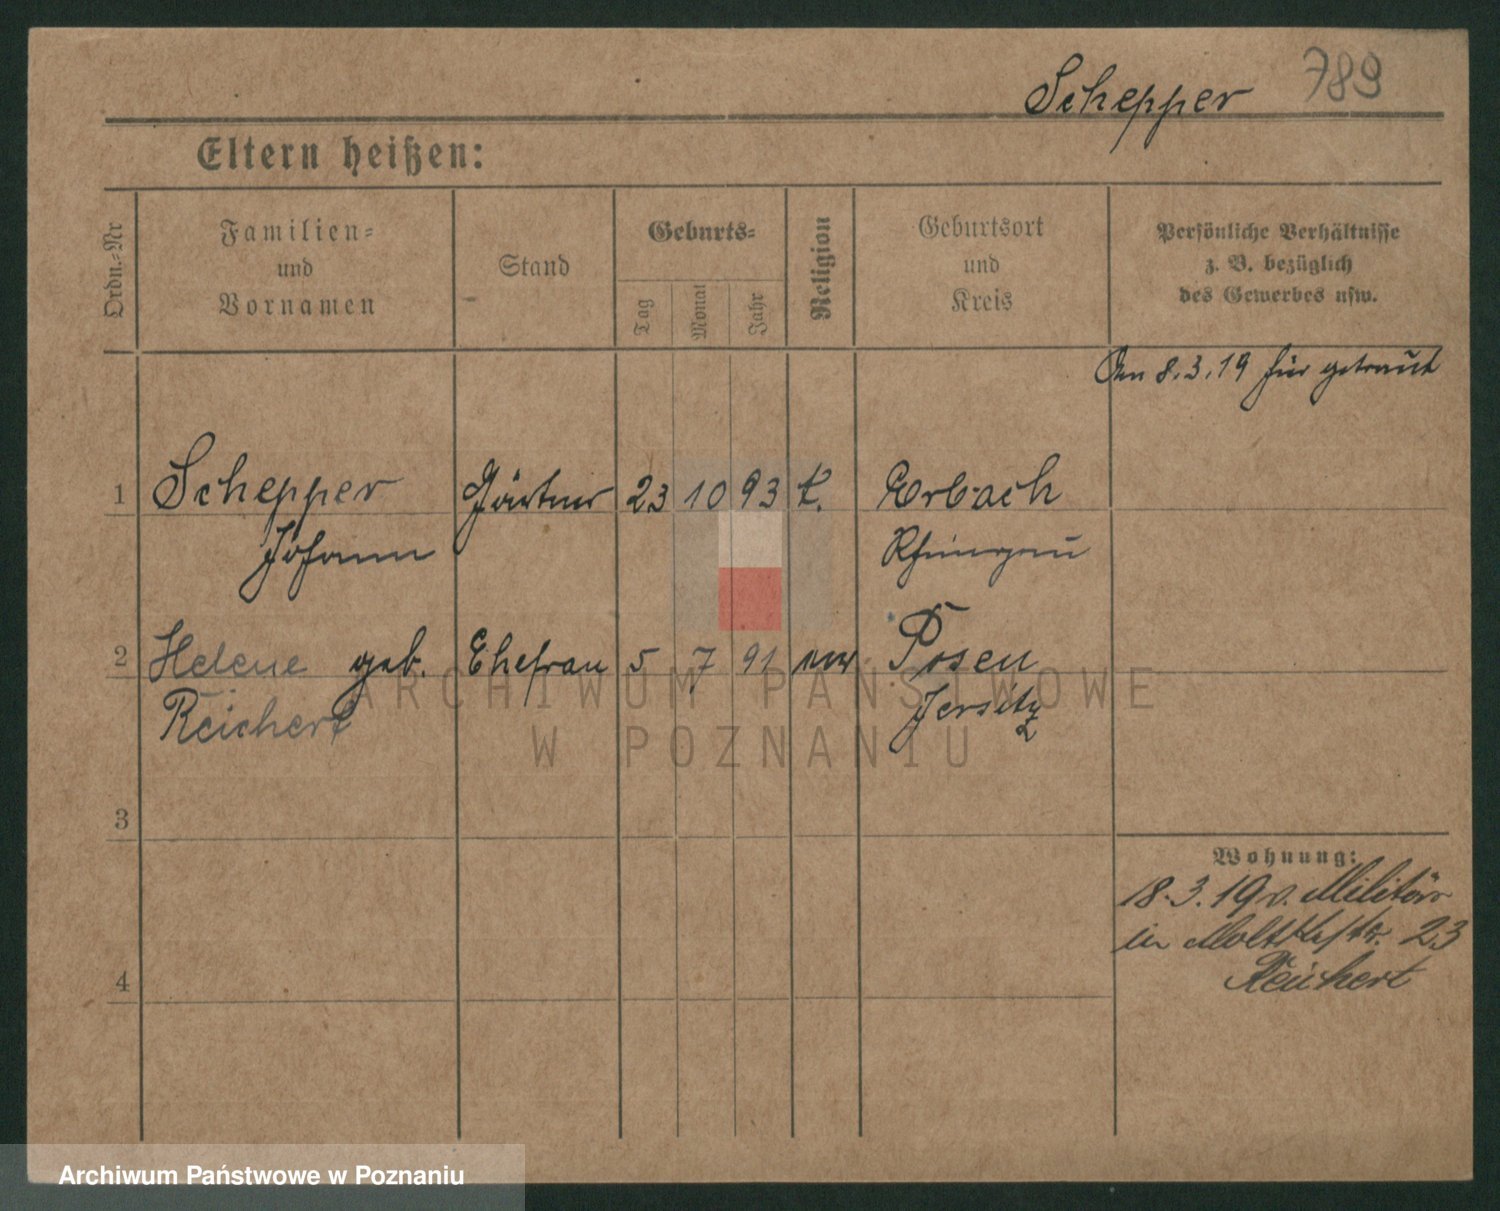 Schepper 789
Eltern heißen:
Ordn.-Nr
Familien-
und
Vornamen
Stand
Geburts-
Tag
Monat
Jahr
Religion
Geburtsort
und
Kreis
Persönliche Verhältnisse
z. B. bezüglich
des Gewerbes usw.
Am 8.3.19 hier getraut
1 Schepper Gärtner 23 10 93 k. Erbach
Johann Rheingau
2 Helene geb. Ehefrau 5 7 91 Posen
Reichert Jersitz
3
4
Wohnung:
18.3.19 v. Militär
in Moltkestr. 23
Reichert
ARCHIWUM PAŃSTWOWE
W POZNANIU
Archiwum Państwowe w Poznaniu